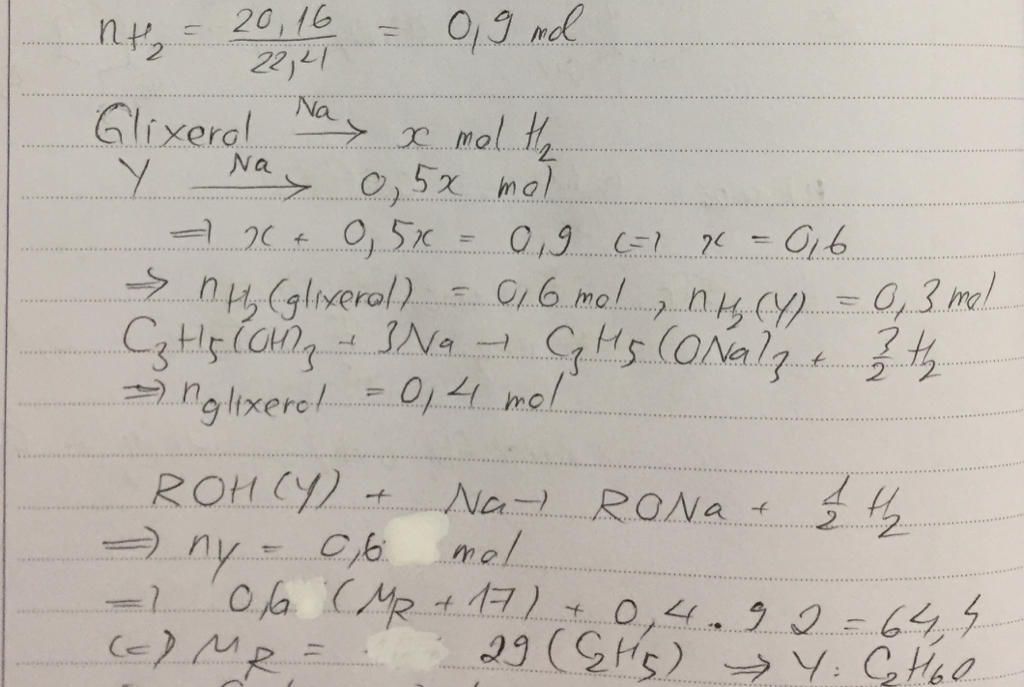 nH₂ = 20,16 / 22,4 = 0,9 mol
Glixerol —Na→ x mol H₂
Y —Na→ 0,5x mol
=> x + 0,5x = 0,9 <=> x = 0,6
=> nH₂(glixerol) = 0,6 mol, nH₂(Y) = 0,3 mol
C₃H₅(OH)₃ + 3Na → C₃H₅(ONa)₃ + 3/2 H₂
=> nglixerol = 0,4 mol
ROH(Y) + Na → RONa + 1/2 H₂
=> nY = 0,6 mol
=> 0,6 (MR + 17) + 0,4 . 92 = 64,4
<=> MR = 29 (C₂H₅) => Y: C₂H₆O